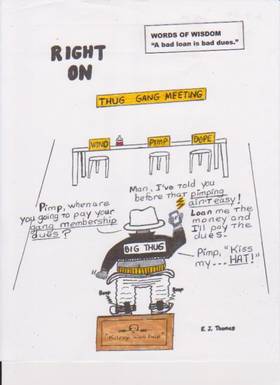 WORDS OF WISDOM
"A bad loan is bad dues."
RIGHT
ON
THUG GANG MEETING
WINO
PIMP
DOPE
Pimp, when are
you going to pay your
gang membership
dues?
Man, I've told you
before that pimping
ain't easy!
Loan me the
money and
I'll pay the
dues.
BIG THUG
Pimp, "Kiss
my... HAT!"
Bump
Bump
E. J. Thomas